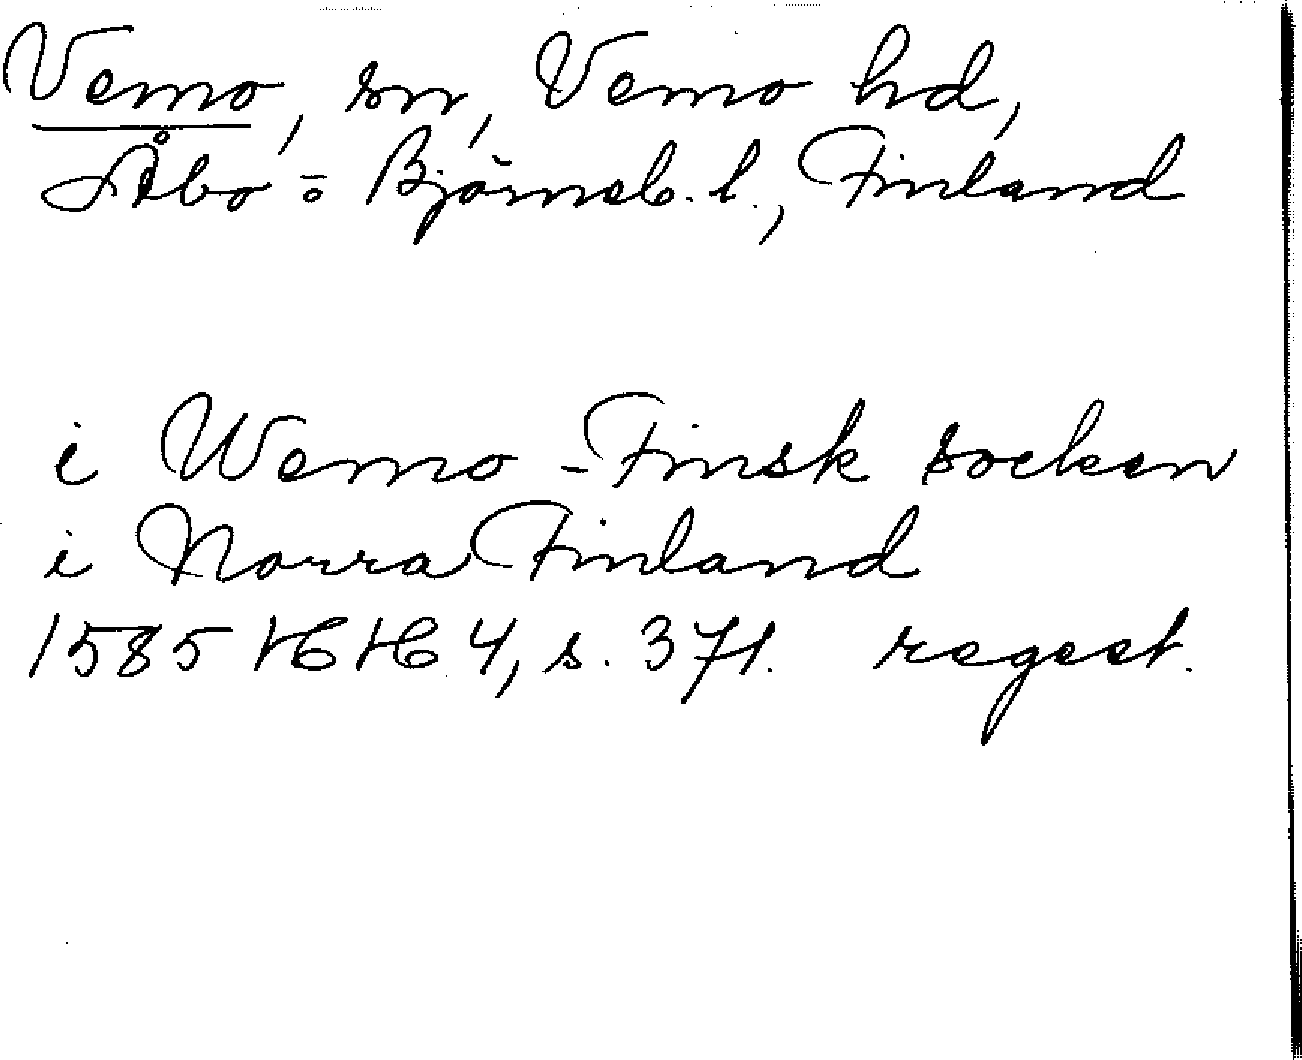 Vemo, sn, Vemo hd,
Åbo- o Björneb. l., Finland
i Wemo - Finsk socken
i Norra Finland
1585 HH 4, s. 371. regest.